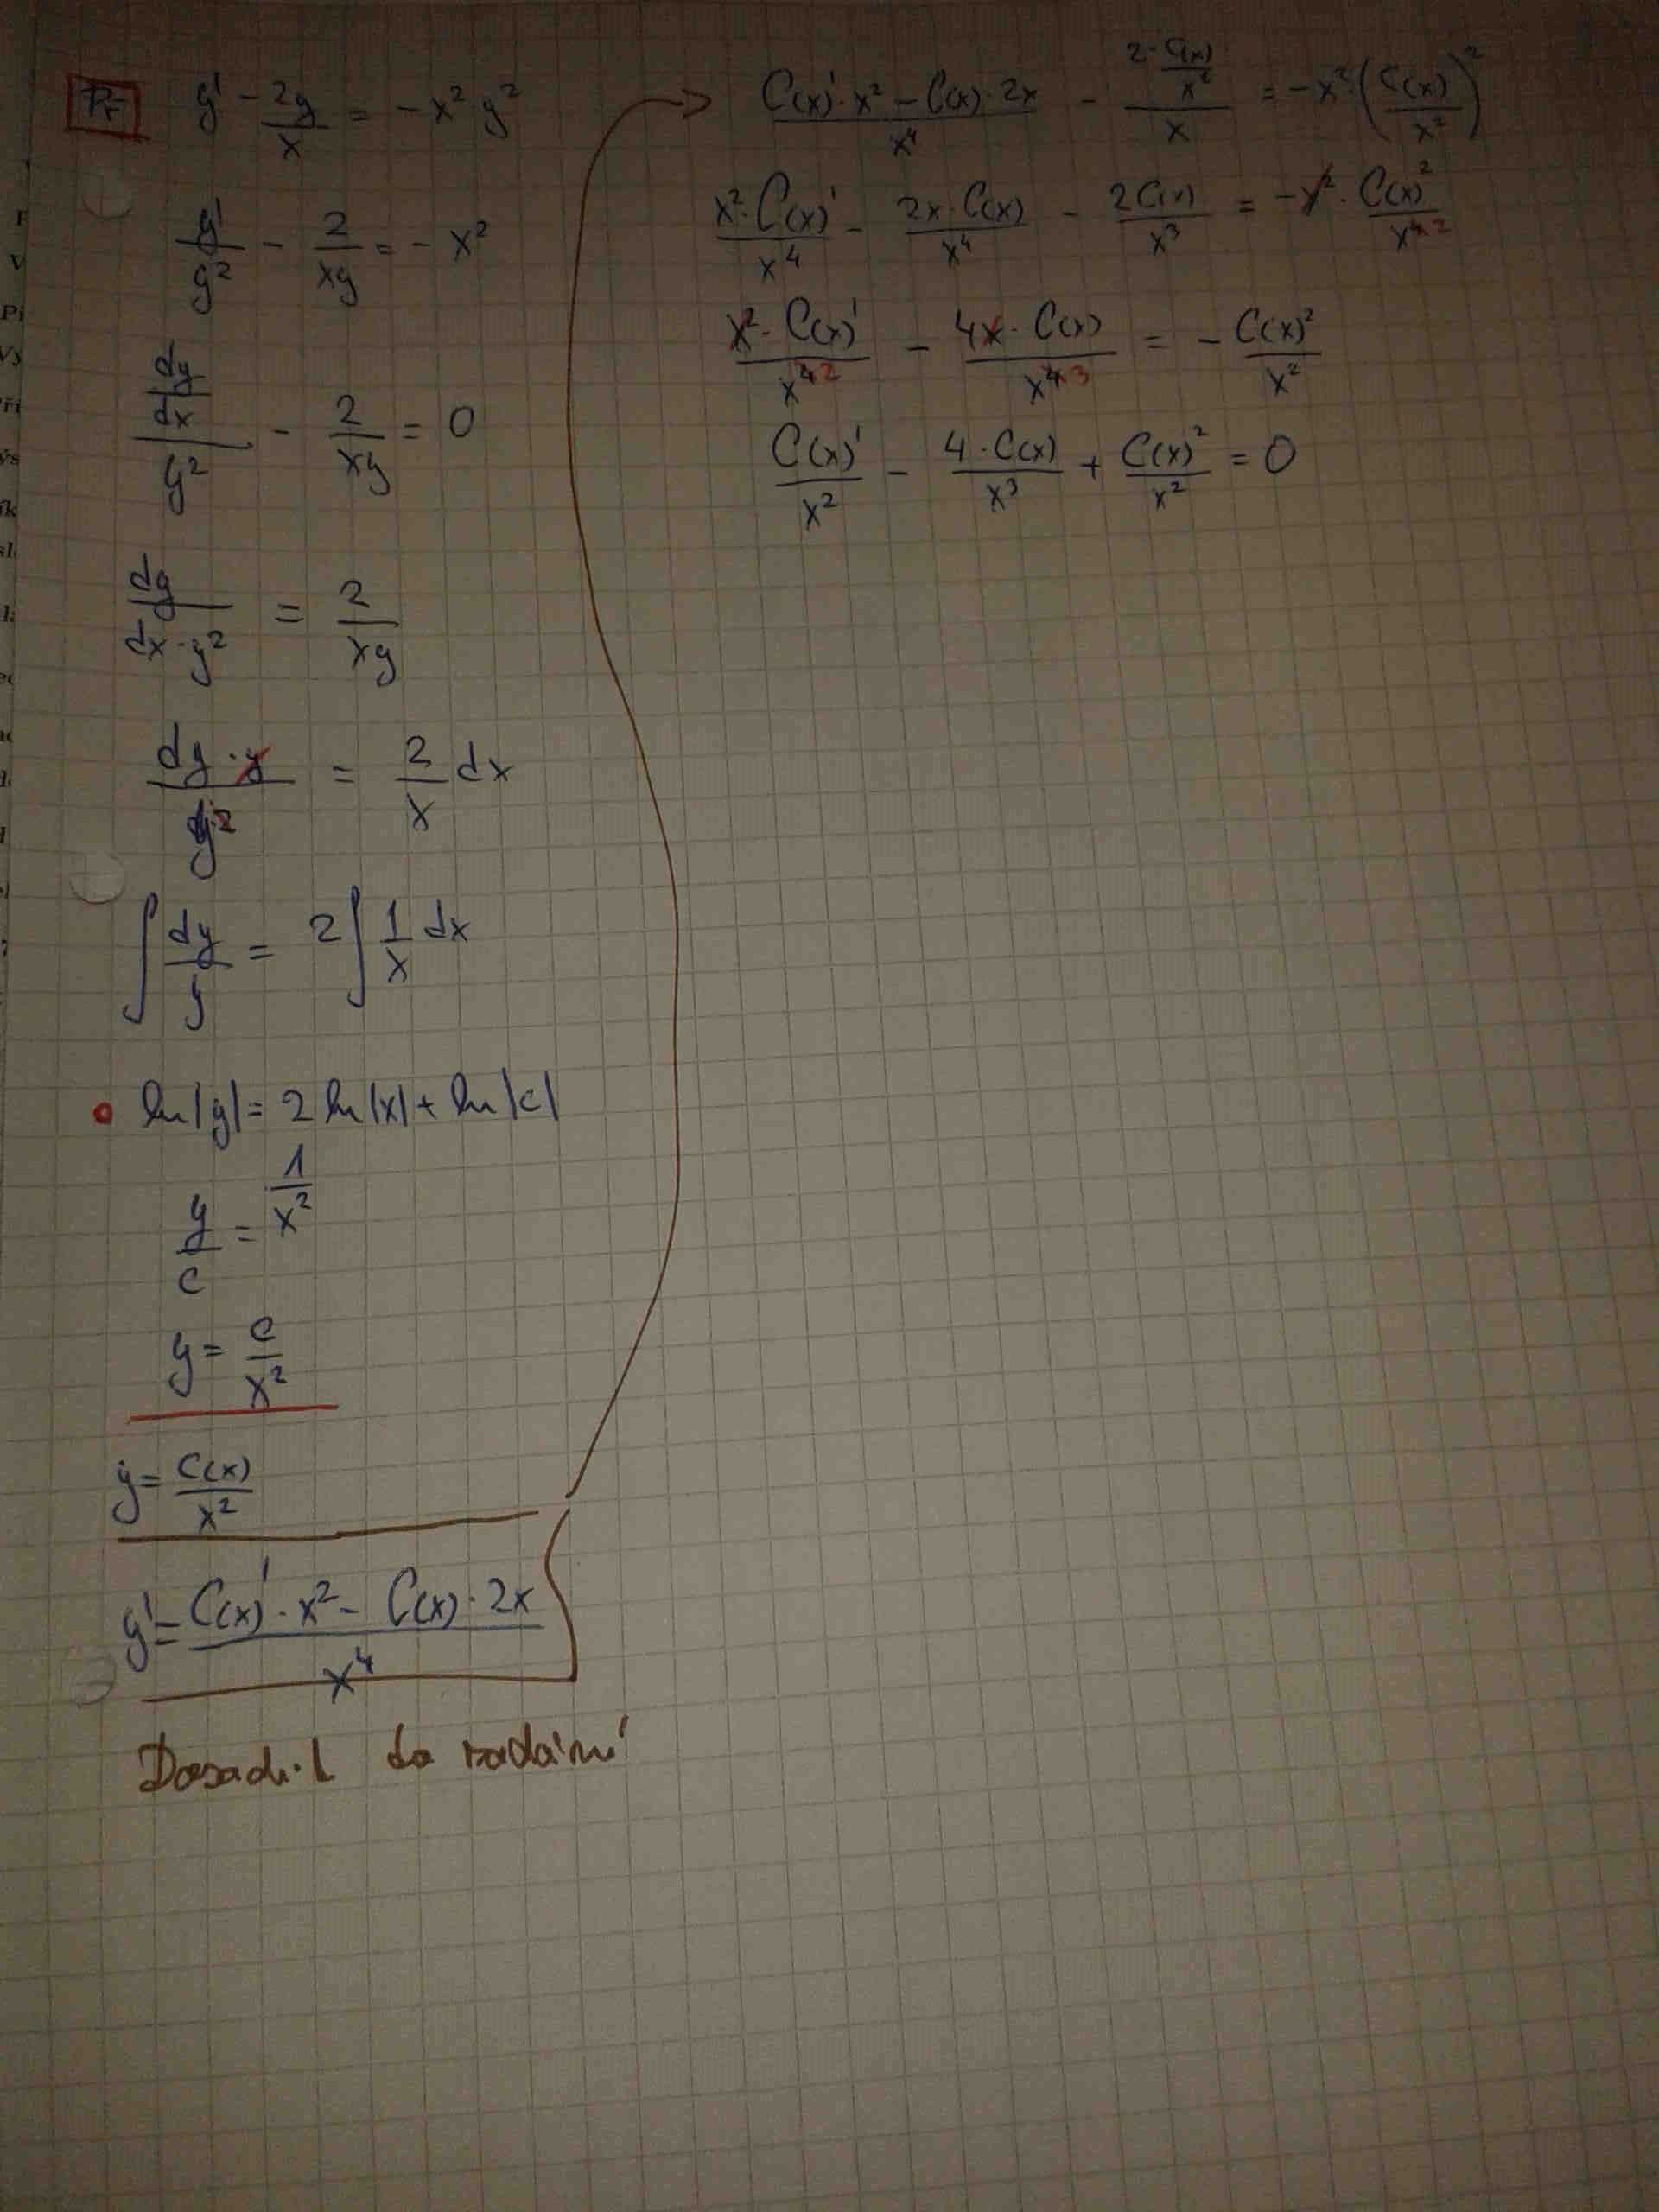 Př y' - 2y/x = -x² y²
y'/y² - 2/xy = - x²
(dy/dx)/y² - 2/xy = 0
dy/(dx·y²) = 2/xy
dy·y/y² = 2/x dx
∫ dy/y = 2∫ 1/x dx
ln|y| = 2 ln|x| + ln|c|
y/c = 1/x²
y = c/x²
y = C(x)/x²
y' = (C(x)'·x² - C(x)·2x)/x⁴
Dosadil do zadání
(C(x)'·x² - C(x)·2x)/x⁴ - (2·C(x)/x²)/x = -x²·(C(x)/x²)²
x²·C(x)'/x⁴ - 2x·C(x)/x⁴ - 2C(x)/x³ = -x²·C(x)²/x⁴ 2
x²·C(x)'/x⁴ 2 - 4x·C(x)/x⁴ 3 = - C(x)²/x²
C(x)'/x² - 4·C(x)/x³ + C(x)²/x² = 0